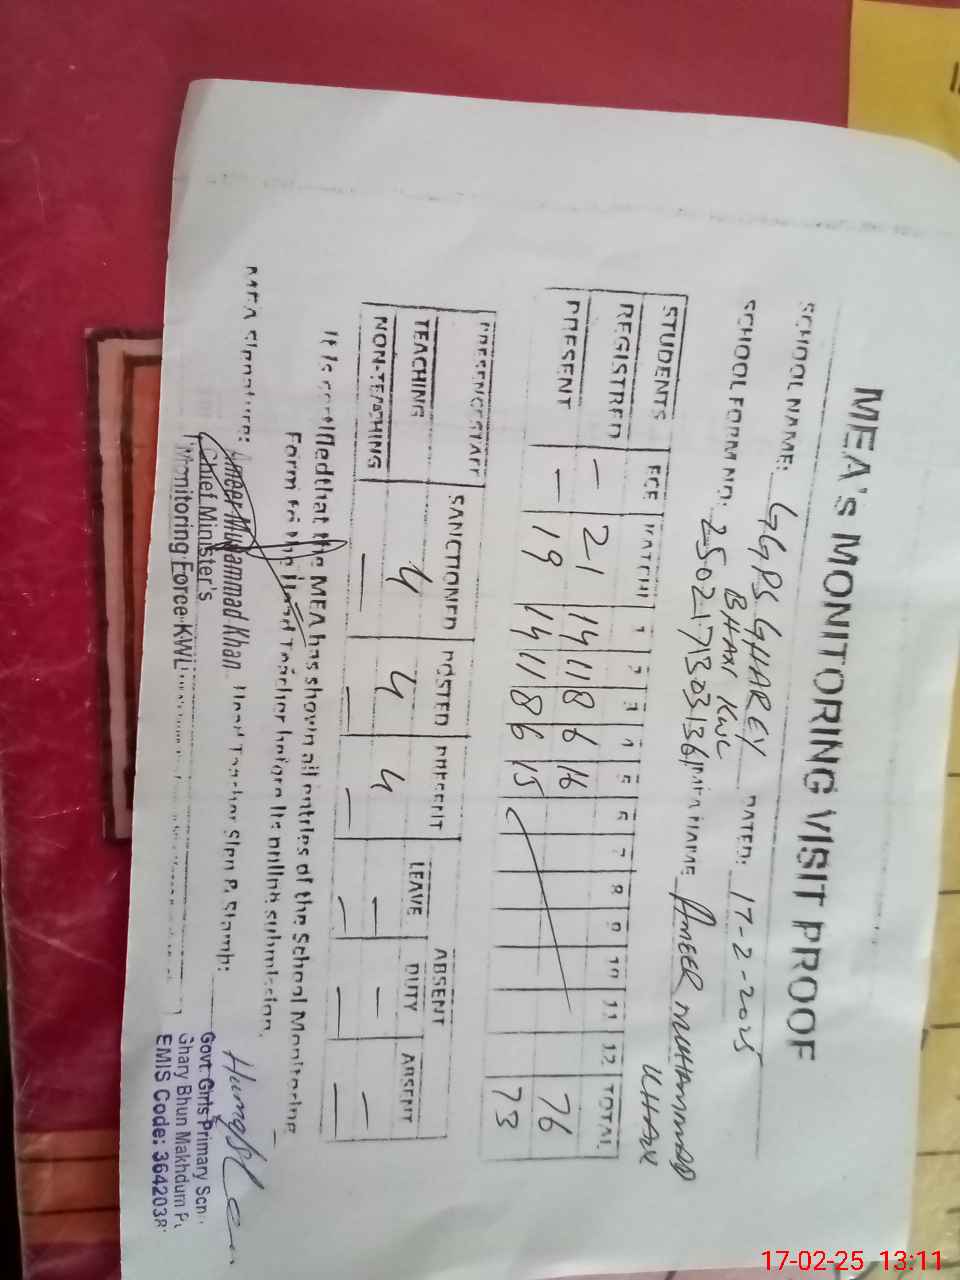 MEA's MONITORING VISIT PROOF
SCHOOL NAME: GGPS GHAREY DATED: 17-2-2025
BHAXI KWL
SCHOOL FORM NO: MEA NAME AMEER MUHAMMAD
KHAN
STUDENTS ECE KATCHI 1 2 3 4 5 6 7 8 9 10 11 12 TOTAL
REGISTRED — 21 14 11 8 6 16 76
PRESENT — 19 14 11 8 6 15 73
PRESENCE STAFF SANCTIONED POSTED PRESENT ABSENT
LEAVE DUTY ABSENT
TEACHING 4 4 4 — — —
NON-TEACHING — — — — — —
It is certified that the MEA has shown all entries of the School Monitoring
Form to the Head Teacher before its online submission.
MEA Signature: Ameer Muhammad Khan Head Teacher Sign & Stamp:
Chief Minister's
Monitoring Force KWL
Govt. Girls Primary
Ghary Bhun Makhdum
EMIS Code: 3642038
17-02-25 13:11